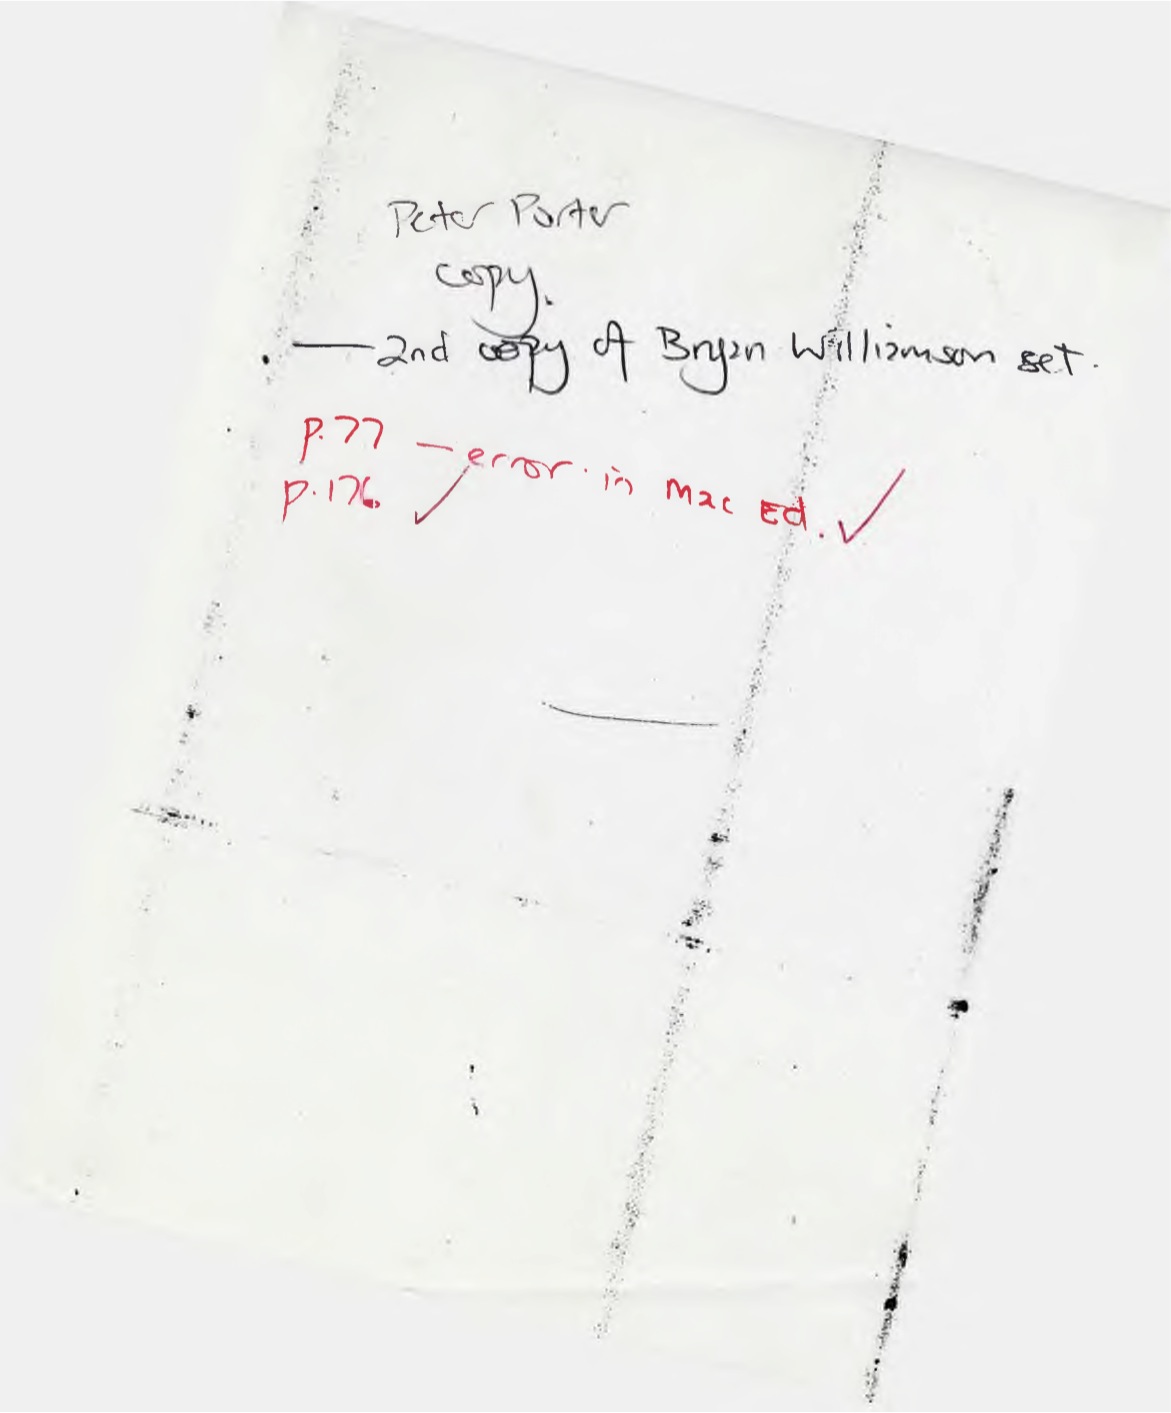 Peter Porter
copy.
— 2nd copy of Bryan Williamson set.
p.77 — error in Mac Ed. ✓
p.176. ✓